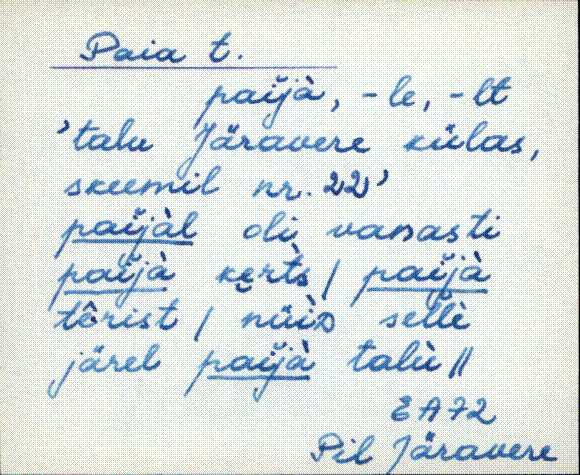 Paia t.
paĭjà, -le, -lt
'talu Järavere külas,
skeemil nr. 22'
paĭjàl oli vanasti
paĭjà kẹrts / paĭjà
tôrist / nüìᴅ sellè
järel paĭjà talù //
EA72
Pil Järavere